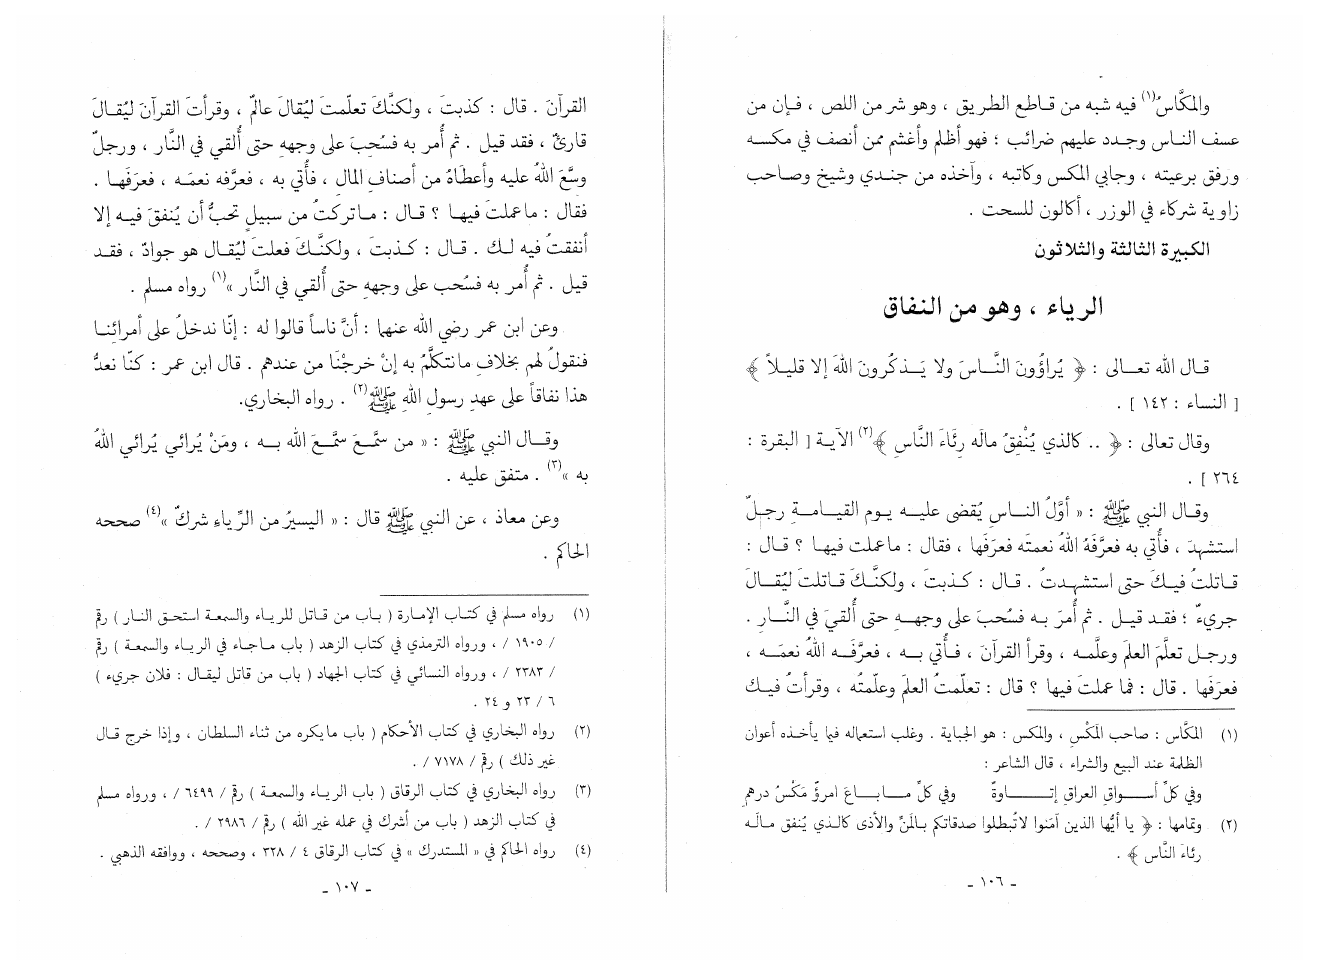 والمكَّاسُ(١) فيه شبه من قاطع الطريق ، وهو شر من اللص ، فإن من
عسف الناس وجدد عليهم ضرائب ؛ فهو أظلم وأغشم ممن أنصف في مكسه
ورفق برعيته ، وجابي المكس وكاتبه ، وآخذه من جندي وشيخ وصاحب
زاوية شركاء في الوزر ، أكالون للسحت .
الكبيرة الثالثة والثلاثون
الرياء ، وهو من النفاق
قال الله تعالى : ﴿ يُراؤُونَ النَّاسَ ولا يَذكُرونَ اللهَ إلا قليلاً ﴾
[ النساء : ١٤٢ ] .
وقال تعالى : ﴿ .. كالذي يُنْفِقُ مالَه رِئَاءَ النَّاسِ ﴾(٢) الآية [ البقرة :
٢٦٤ ] .
وقال النبي ﷺ : « أوَّلُ الناسِ يُقضى عليه يوم القيامةِ رجلٌ
استشهدَ ، فأُتي به فعرَّفَهُ اللهُ نعمتَه فعرَفَها ، فقال : ماعملت فيها ؟ قال :
قاتلتُ فيكَ حتى استشهدتُ . قال : كذبتَ ، ولكنَّكَ قاتلتَ ليُقالَ
جريءٌ ؛ فقد قيل . ثم أُمرَ به فسُحبَ على وجهِهِ حتى أُلقيَ في النَّارِ .
ورجل تعلَّمَ العلمَ وعلَّمه ، وقرأ القرآن ، فأُتي به ، فعرَّفَه اللهُ نعمَه ،
فعرَفَها . قال : فما عملتَ فيها ؟ قال : تعلمتُ العلمَ وعلَّمتُه ، وقرأتُ فيك
(١) المكَّاس : صاحب المَكْسِ ، والمكس : هو الجباية . وغلب استعماله فيما يأخذه أعوان
الظلمة عند البيع والشراء ، قال الشاعر :
وفي كلِّ أسواقِ العراقِ إتاوةٌ وفي كلِّ ماباعَ امرؤٌ مَكْسُ درهمِ
(٢) وتمامها : ﴿ يا أيُّها الذين آمَنوا لاتُبطلوا صدقاتكم بالمنِّ والأذى كالذي يُنفق مالَه
رئاءَ النَّاس ﴾ .
- ١٠٦ -
القرآنَ . قال : كذبتَ ، ولكنَّكَ تعلّمتَ ليُقالَ عالمٌ ، وقرأتَ القرآنَ ليُقالَ
قارئٌ ، فقد قيل . ثم أُمر به فسُحبَ على وجههِ حتى أُلقي في النَّار ، ورجلٌ
وسَّعَ اللهُ عليه وأعطَاهُ من أصنافِ المال ، فأُتي به ، فعرَّفه نعمَه ، فعرَفَها .
فقال : ماعملتَ فيها ؟ قال : ماتركتُ من سبيلٍ تحبُّ أن يُنفقَ فيه إلا
أنفقتُ فيه لك . قال : كذبتَ ، ولكنَّكَ فعلتَ ليُقالَ هو جوادٌ ، فقد
قيل . ثم أُمر به فسُحب على وجههِ حتى أُلقي في النَّار »(١) رواه مسلم .
وعن ابن عمر رضي الله عنهما : أنَّ ناساً قالوا له : إنّا ندخلُ على أمرائِنا
فنقولُ لهم بخلافِ مانتكلَّمُ به إنْ خرجْنَا من عندهم . قال ابن عمر : كنّا نعدُّ
هذا نفاقاً على عهدِ رسولِ اللهِ ﷺ(٢) . رواه البخاري.
وقال النبي ﷺ : « من سمَّعَ سمَّعَ الله به ، ومَنْ يُرائي يُرائي اللهُ
به »(٣) . متفق عليه .
وعن معاذ ، عن النبي ﷺ قال : « اليسيرُ من الرِّياءِ شركٌ »(٤) صححه
الحاكم .
(١) رواه مسلم في كتاب الإمارة ( باب من قاتل للرياء والسمعة استحق النار ) رقم
/ ١٩٠٥ / ، ورواه الترمذي في كتاب الزهد ( باب ماجاء في الرياء والسمعة ) رقم
/ ٢٣٨٣ / ، ورواه النسائي في كتاب الجهاد ( باب من قاتل ليقال : فلان جريء )
٦ / ٢٣ و ٢٤ .
(٢) رواه البخاري في كتاب الأحكام ( باب مايكره من ثناء السلطان ، وإذا خرج قال
غير ذلك ) رقم / ٧١٧٨ / .
(٣) رواه البخاري في كتاب الرقاق ( باب الرياء والسمعة ) رقم / ٦٤٩٩ / ، ورواه مسلم
في كتاب الزهد ( باب من أشرك في عمله غير الله ) رقم / ٢٩٨٦ / .
(٤) رواه الحاكم في « المستدرك » في كتاب الرقاق ٤ / ٣٢٨ ، وصححه ، ووافقه الذهبي .
- ١٠٧ -